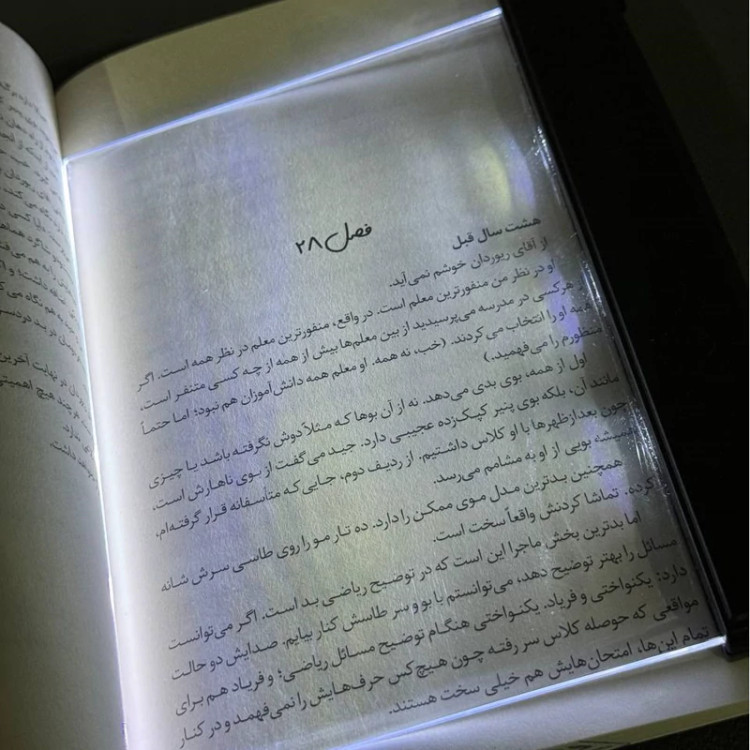 فصل ۲۸
هشت سال قبل
از آقای ریوردان خوشم نمی‌آید.
او در نظر من منفورترین معلم است. در واقع، منفورترین معلم در نظر همه است. اگر
هرکسی در مدرسه می‌پرسیدید از بین معلم‌ها بیش از همه از چه کسی متنفر است،
همه او را انتخاب می‌کردند. (خب، نه همه. او معلم همه دانش‌آموزان هم نبود؛ اما حتماً
منظورم را می‌فهمید.)
اول از همه، بوی بدی می‌دهد. نه از آن بوها که مثلاً دوش نگرفته باشد یا چیزی
مانند آن، بلکه بوی پنیر کپک‌زده عجیبی دارد. جید می‌گفت از بوی ناهارش است،
چون بعدازظهرها با او کلاس داشتیم. از ردیف دوم، جایی که متأسفانه قرار گرفته‌ام،
همیشه بویی از او به مشامم می‌رسد.
همچنین بدترین مدل موی ممکن را دارد. ده تار مو را روی طاسی سرش شانه
کرده. تماشا کردنش واقعاً سخت است.
اما بدترین بخش ماجرا این است که در توضیح ریاضی بد است. اگر می‌توانست
مسائل را بهتر توضیح دهد، می‌توانستم با بو و سر طاسش کنار بیایم. صدایش دو حالت
دارد: یکنواختی و فریاد. یکنواختی هنگام توضیح مسائل ریاضی؛ و فریاد هم برای
مواقعی که حوصله کلاس سر رفته چون هیچ‌کس حرف‌هایش را نمی‌فهمد و در کنار
تمام این‌ها، امتحان‌هایش هم خیلی سخت هستند.